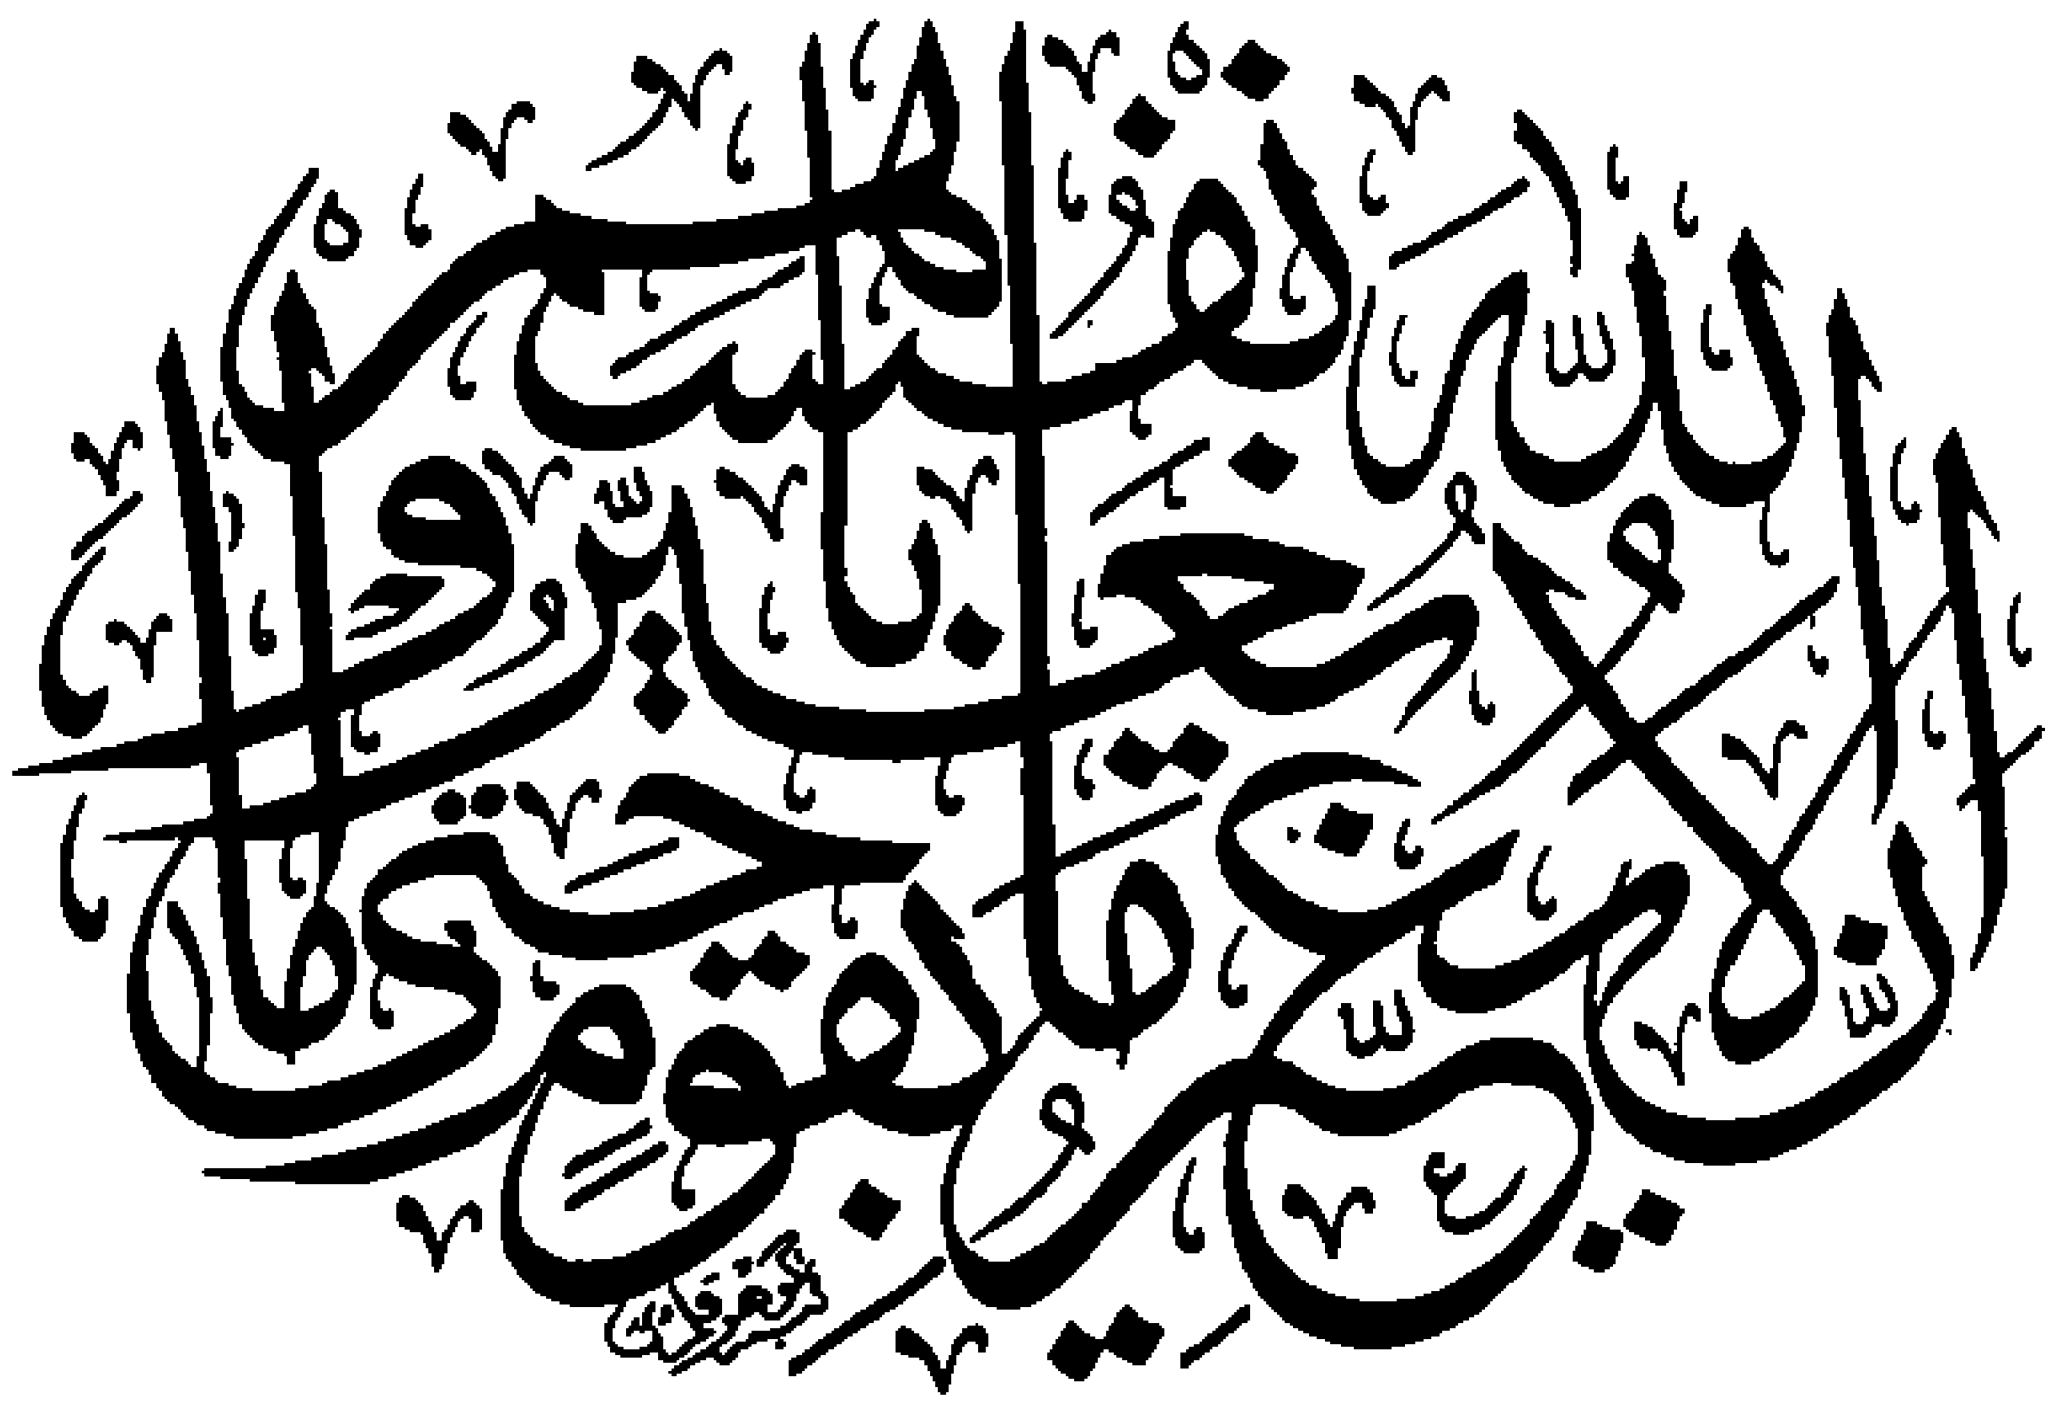 إِنَّ اللَّهَ لَا يُغَيِّرُ مَا بِقَوْمٍ حَتَّىٰ يُغَيِّرُوا مَا بِأَنْفُسِهِمْ